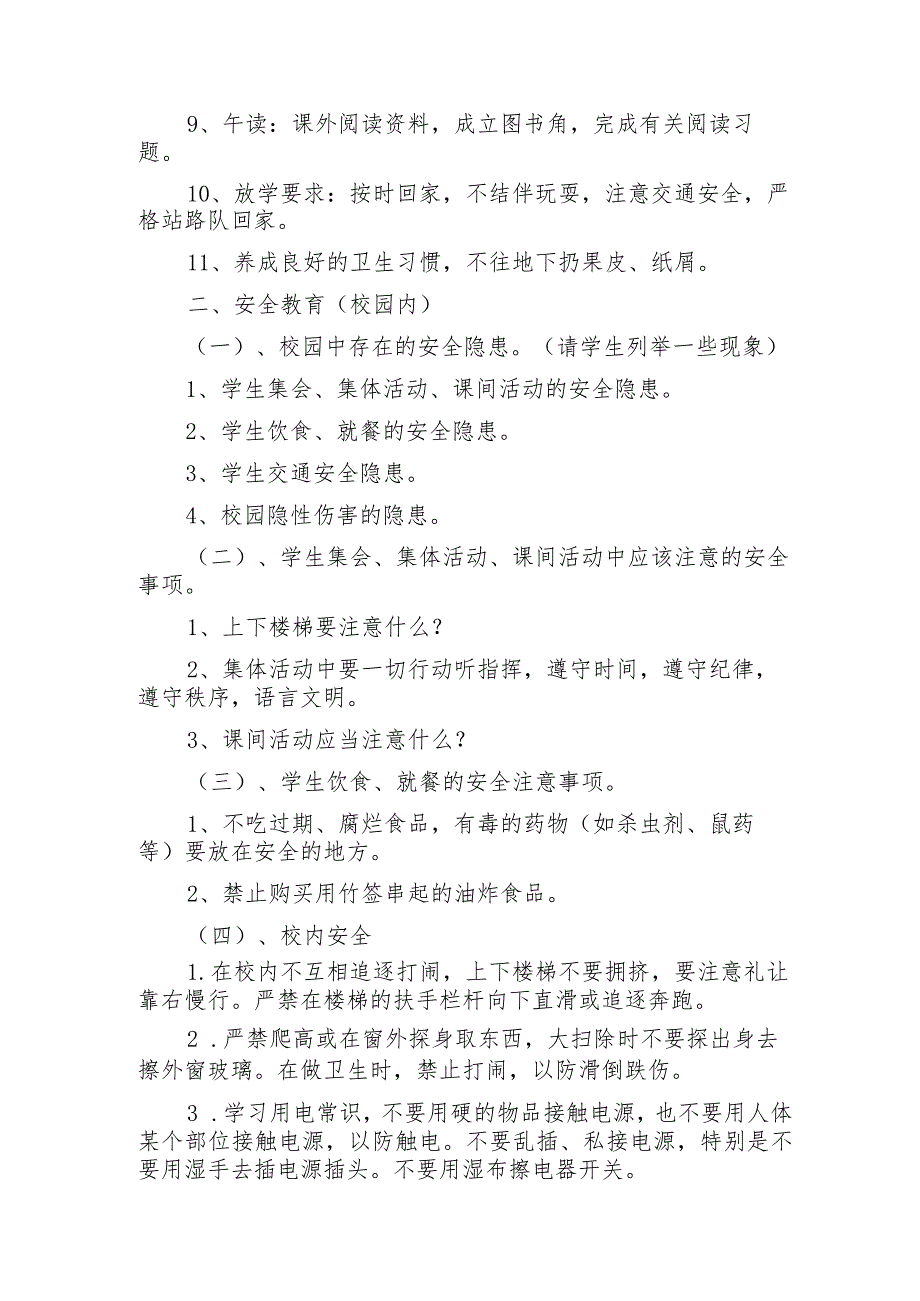 9、午读：课外阅读资料，成立图书角，完成有关阅读习
题。
10、放学要求：按时回家，不结伴玩耍，注意交通安全，严
格站路队回家。
11、养成良好的卫生习惯，不往地下扔果皮、纸屑。
二、安全教育（校园内）
（一）、校园中存在的安全隐患。（请学生列举一些现象）
1、学生集会、集体活动、课间活动的安全隐患。
2、学生饮食、就餐的安全隐患。
3、学生交通安全隐患。
4、校园隐性伤害的隐患。
（二）、学生集会、集体活动、课间活动中应该注意的安全
事项。
1、上下楼梯要注意什么？
2、集体活动中要一切行动听指挥，遵守时间，遵守纪律，
遵守秩序，语言文明。
3、课间活动应当注意什么？
（三）、学生饮食、就餐的安全注意事项。
1、不吃过期、腐烂食品，有毒的药物（如杀虫剂、鼠药
等）要放在安全的地方。
2、禁止购买用竹签串起的油炸食品。
（四）、校内安全
1.在校内不互相追逐打闹，上下楼梯不要拥挤，要注意礼让
靠右慢行。严禁在楼梯的扶手栏杆向下直滑或追逐奔跑。
2 .严禁爬高或在窗外探身取东西，大扫除时不要探出身去
擦外窗玻璃。在做卫生时，禁止打闹，以防滑倒跌伤。
3 .学习用电常识，不要用硬的物品接触电源，也不要用人体
某个部位接触电源，以防触电。不要乱插、私接电源，特别是不
要用湿手去插电源插头。不要用湿布擦电器开关。